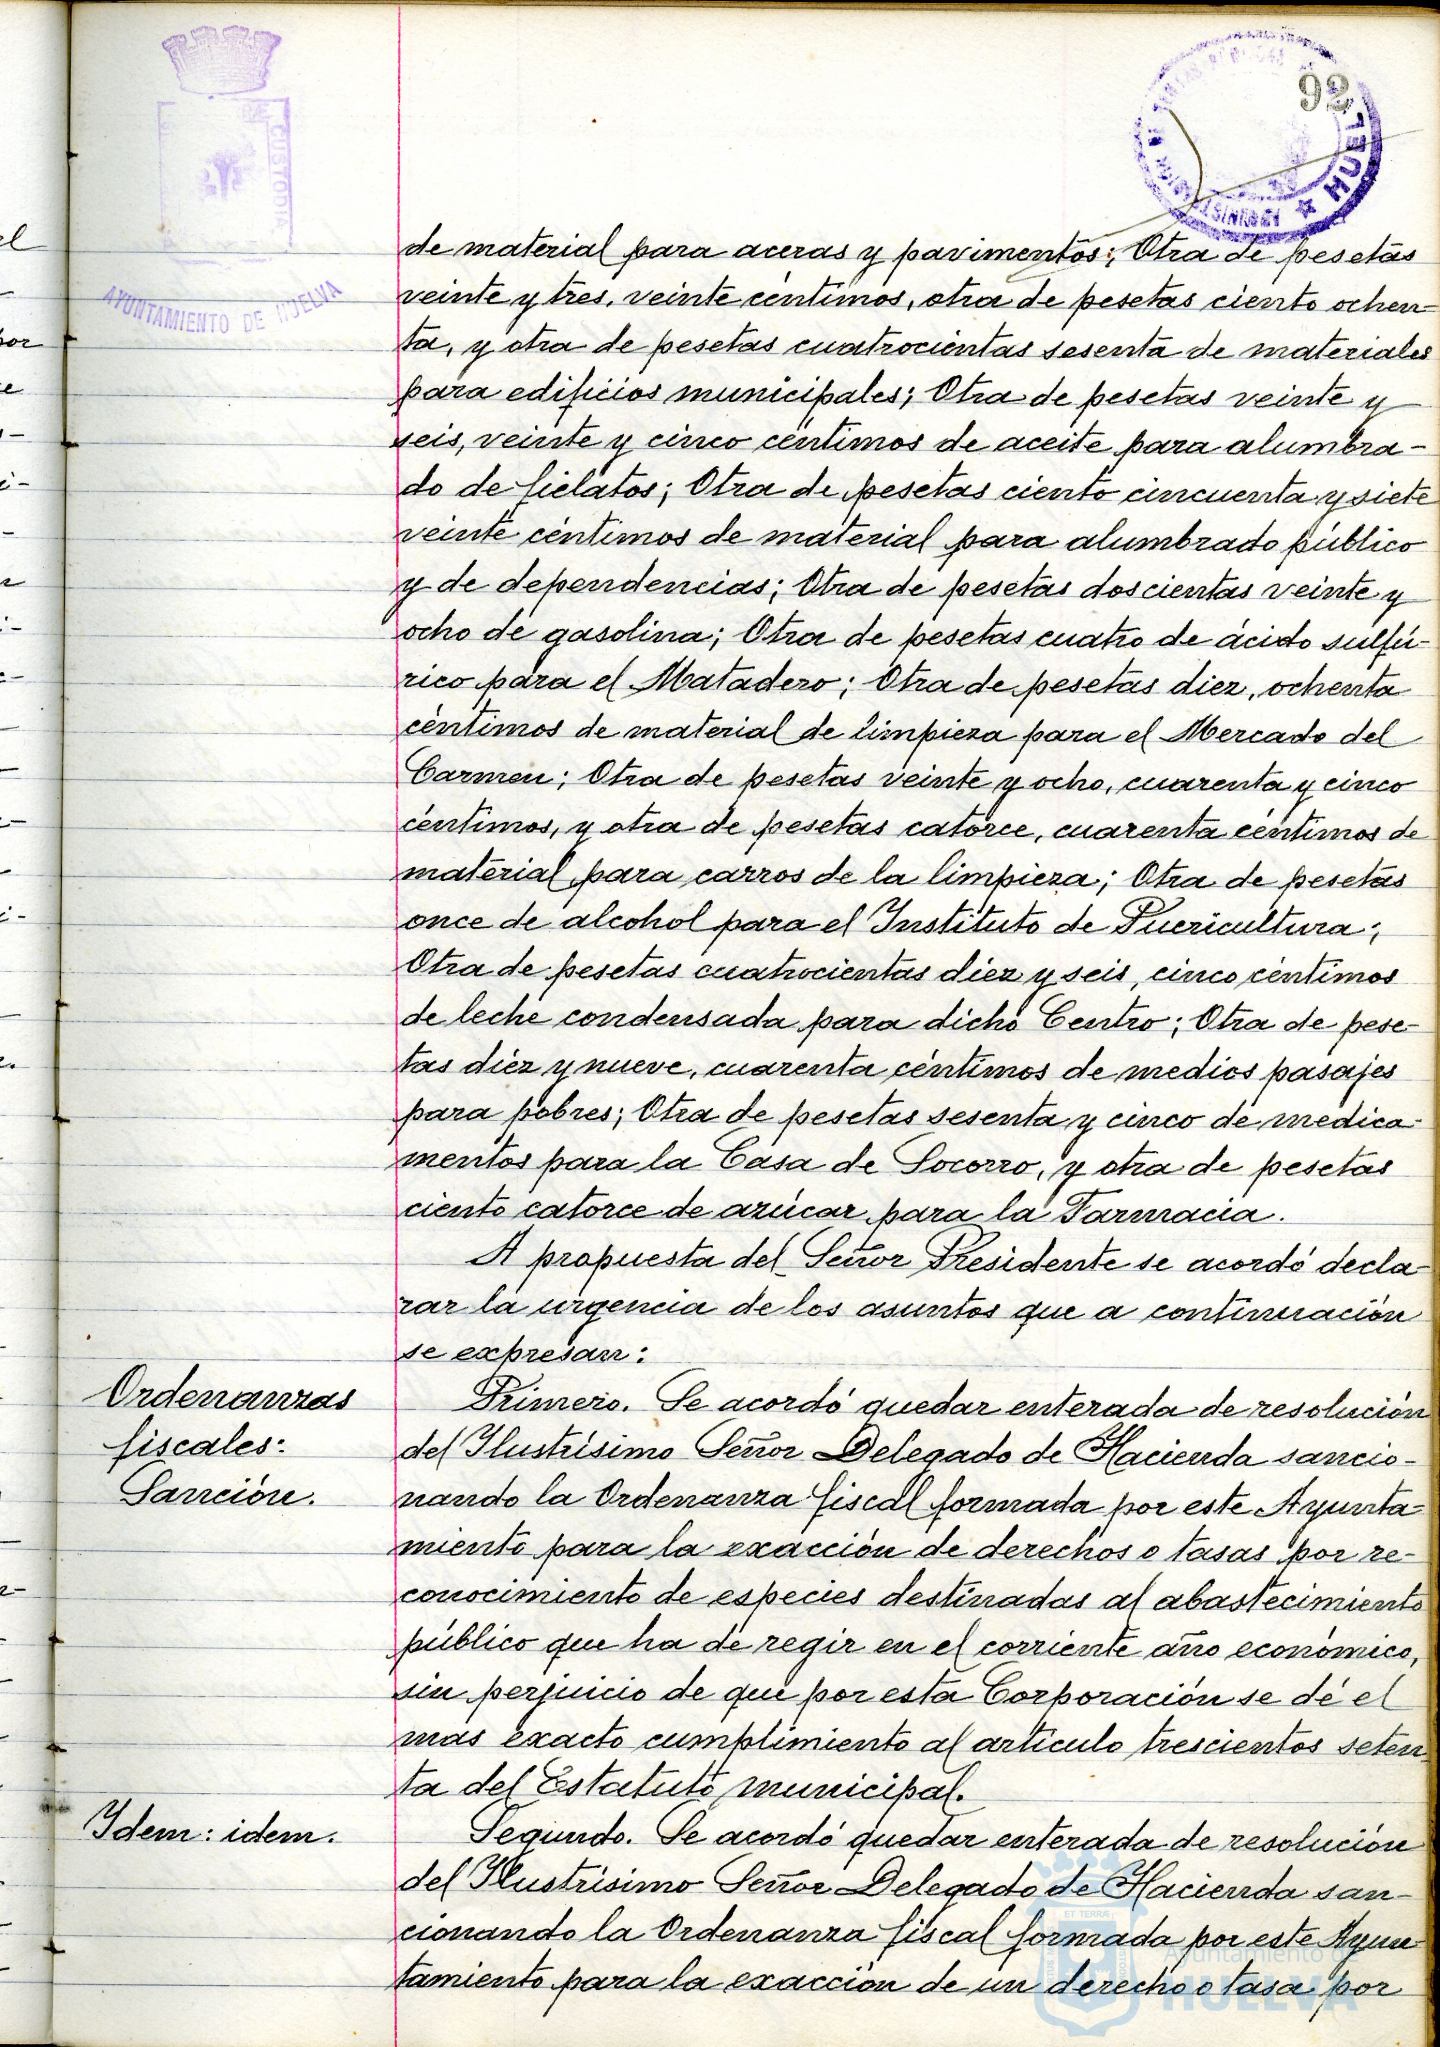 92
HUEL
CUSTODIA
AYUNTAMIENTO DE HUELVA
de material para aceras y pavimentos; Otra de pesetas
veinte y tres, veinte céntimos, otra de pesetas ciento ochen-
ta, y otra de pesetas cuatrocientas sesenta de materiales
para edificios municipales; Otra de pesetas veinte y
seis, veinte y cinco céntimos de aceite para alumbra-
do de fielatos; Otra de pesetas ciento cincuenta y siete
veinte céntimos de material para alumbrado público
y de dependencias; Otra de pesetas doscientas veinte y
ocho de gasolina; Otra de pesetas cuatro de ácido sulfú-
rico para el Matadero; Otra de pesetas diez, ochenta
céntimos de material de limpieza para el Mercado del
Carmen; Otra de pesetas veinte y ocho, cuarenta y cinco
céntimos, y otra de pesetas catorce, cuarenta céntimos de
material para carros de la limpieza; Otra de pesetas
once de alcohol para el Instituto de Puericultura;
Otra de pesetas cuatrocientas diez y seis, cinco céntimos
de leche condensada para dicho Centro; Otra de pese-
tas diez y nueve, cuarenta céntimos de medios pasajes
para pobres; Otra de pesetas sesenta y cinco de medica-
mentos para la Casa de Socorro, y otra de pesetas
ciento catorce de azúcar para la Farmacia.
A propuesta del Señor Presidente se acordó decla-
rar la urgencia de los asuntos que a continuación
se expresan:
Ordenanzas
fiscales:
Sanción.
Primero. Se acordó quedar enterada de resolución
del Ilustrísimo Señor Delegado de Hacienda sancio-
nando la Ordenanza fiscal formada por este Ayunta-
miento para la exacción de derechos o tasas por re-
conocimiento de especies destinadas al abastecimiento
público que ha de regir en el corriente año económico,
sin perjuicio de que por esta Corporación se dé el
mas exacto cumplimiento al artículo trescientos seten
ta del Estatuto municipal.
Idem: idem.
Segundo. Se acordó quedar enterada de resolución
del Ilustrísimo Señor Delegado de Hacienda san-
cionando la Ordenanza fiscal formada por este Ayun-
tamiento para la exacción de un derecho o tasa por
ET TERRÆ
Ayuntamiento
HUELVA